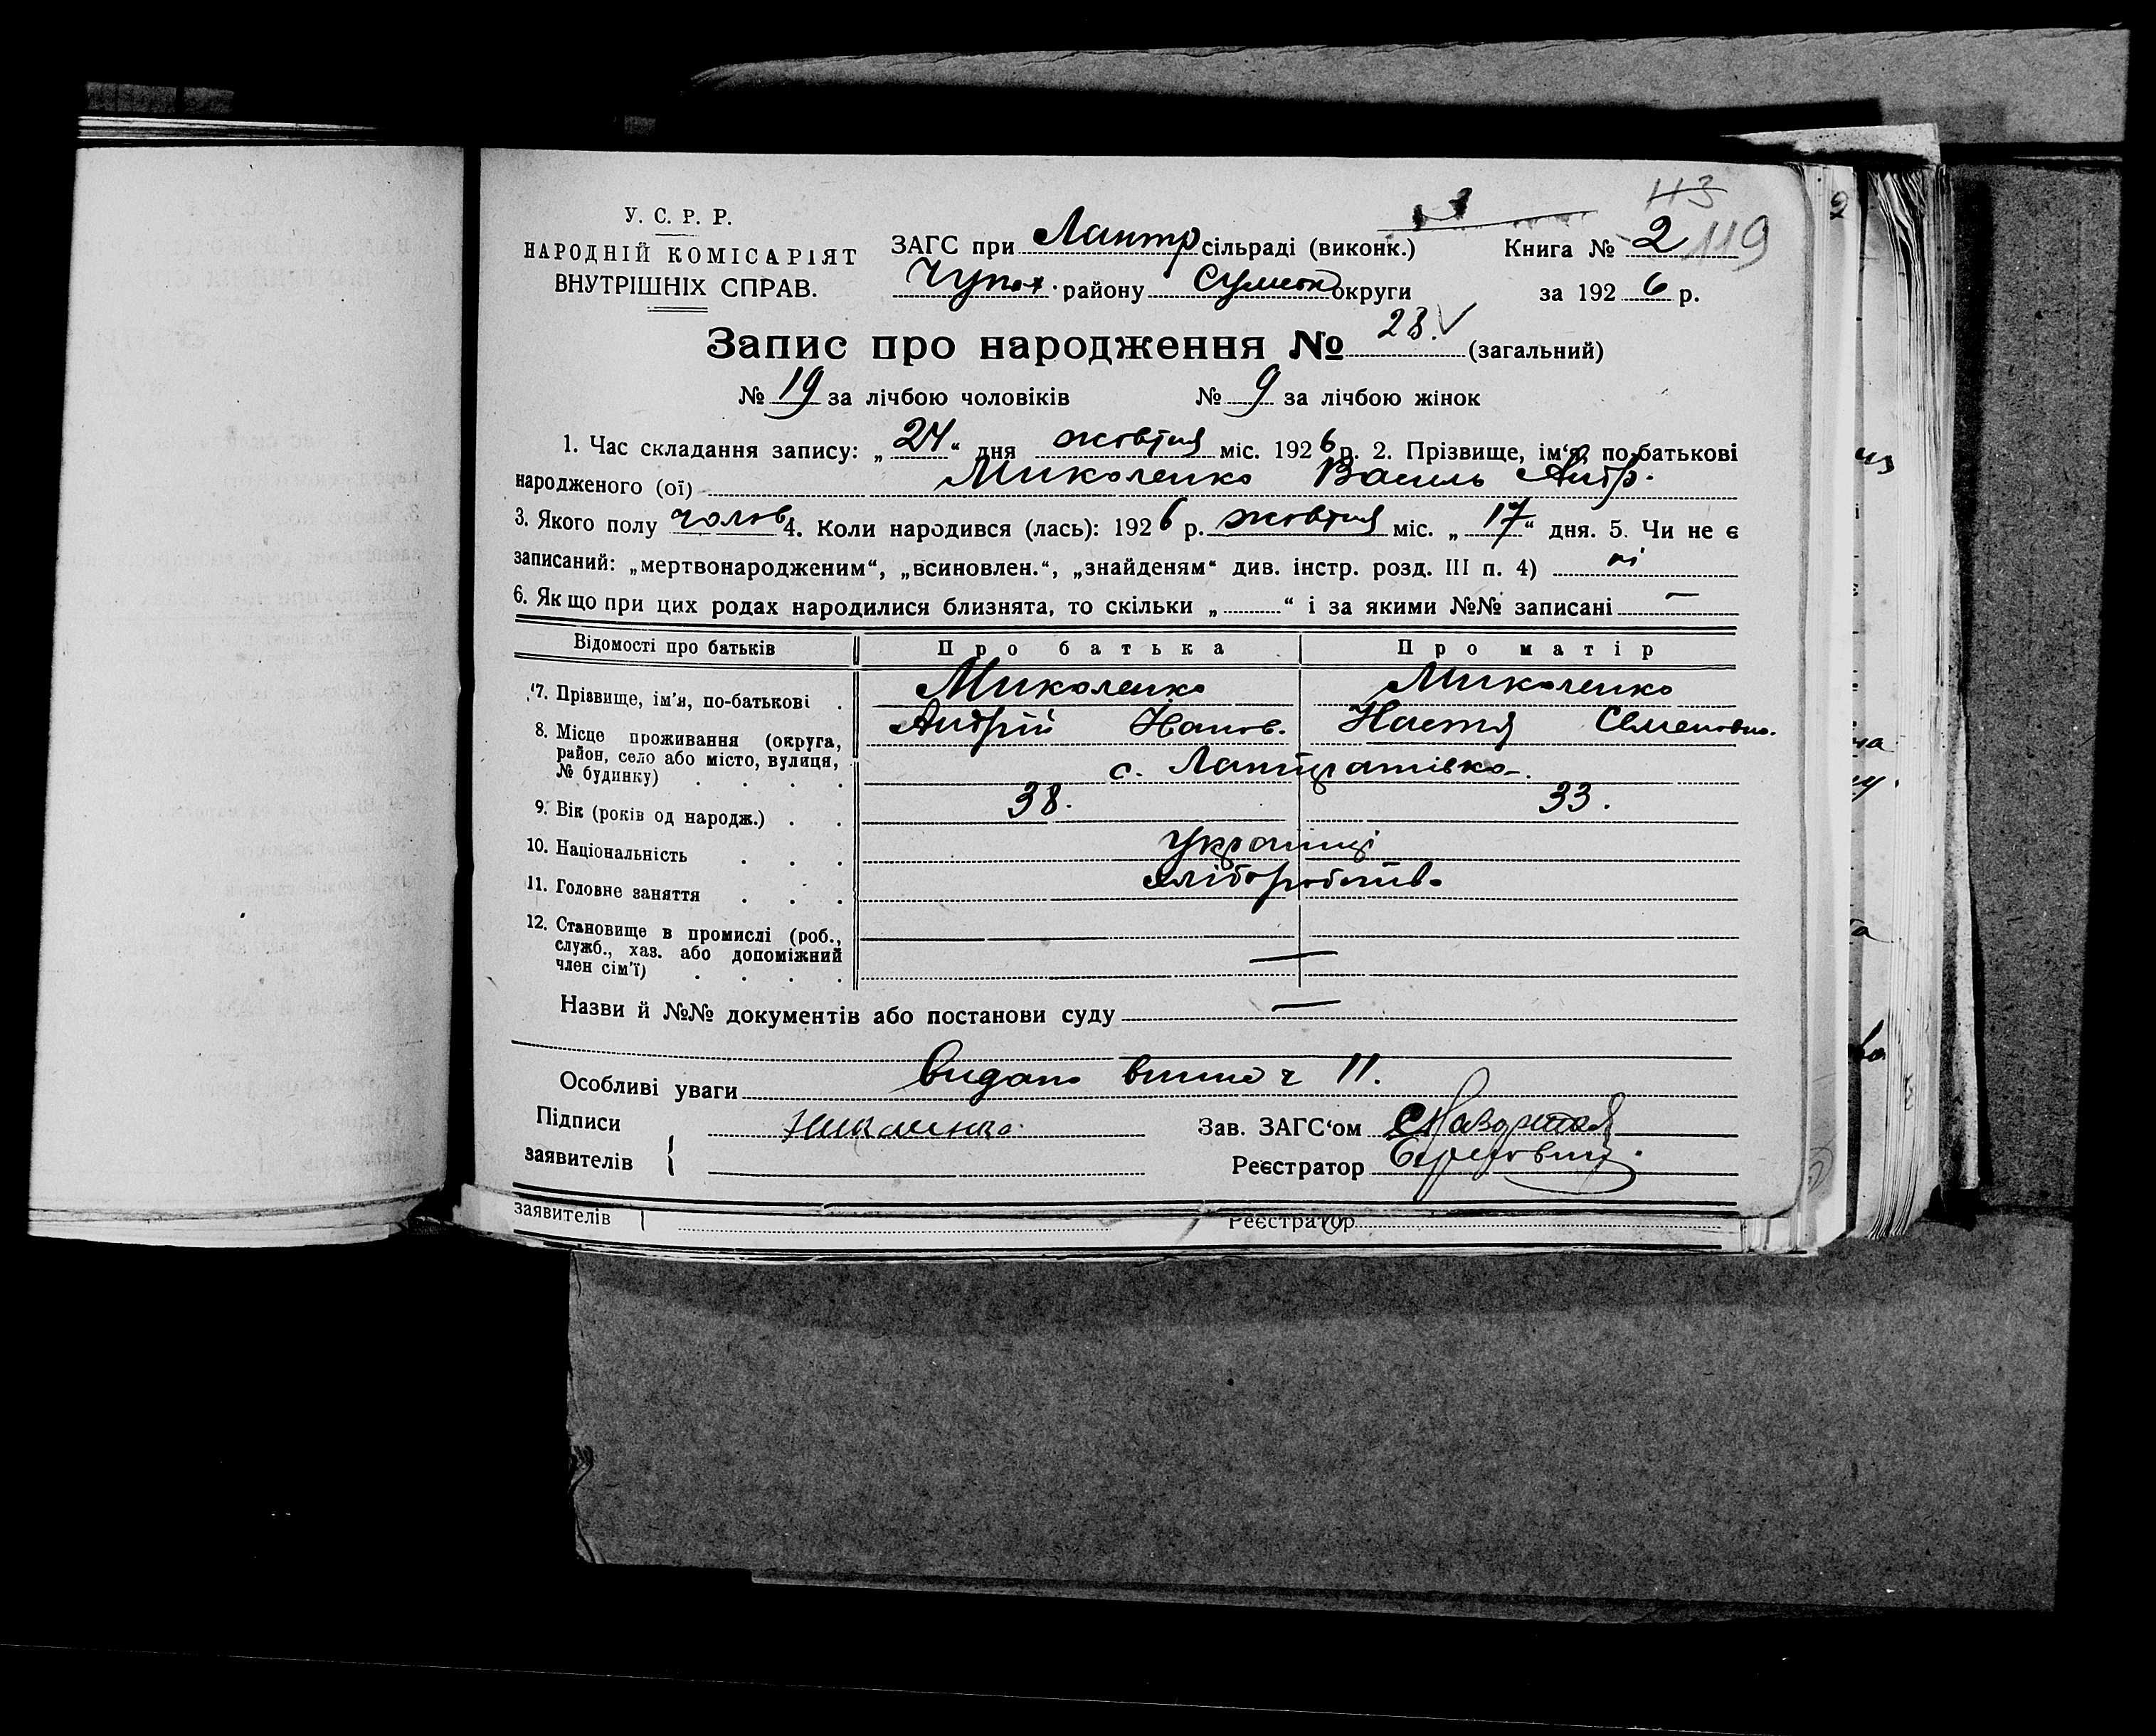 113
119
У. С. Р. Р.
НАРОДНІЙ КОМІСАРІЯТ
ВНУТРІШНІХ СПРАВ.
ЗАГС при Лантр сільраді (виконк.) Книга № 2
Чупах. району Сумськ округи за 1926 р.
Запис про народження № 28. (загальний)
№ 19 за лічбою чоловіків № 9 за лічбою жінок
1. Час складання запису: „24“ дня жовтня міс. 1926 р. 2. Прізвище, ім‘я, по-батькові
народженого (ої) Миколенко Василь Андр.
3. Якого полу чолов 4. Коли народився (лась): 1926 р. жовтня міс. „17“ дня. 5. Чи не є
записаний: „мертвонародженим“, „всиновлен.“, „знайденям“ див. інстр. розд. III п. 4) ні
6. Якщо при цих родах народилися близнята, то скільки „ “ і за якими №№ записані —
Відомості про батьків Про батька Про матір
7. Прізвище, ім'я, по-батькові . Миколенко Миколенко
Андрій Настя Семеновна.
8. Місце проживання (округа,
район, село або місто, вулиця,
№ будинку) . . . . с. Лантратівка.
9. Вік (років од народж.) . . 38. 33.
10. Національність . . . Українці
11. Головне заняття . . . хліборобство
12. Становище в промислі (роб.,
служб., хаз. або допоміжний
член сім'ї) . . . . —
Назви й №№ документів або постанови суду —
Особливі уваги Видано 11.
Підписи Зав. ЗАГС‘ом
заявителів { Реєстратор
заявителів Реєстратор